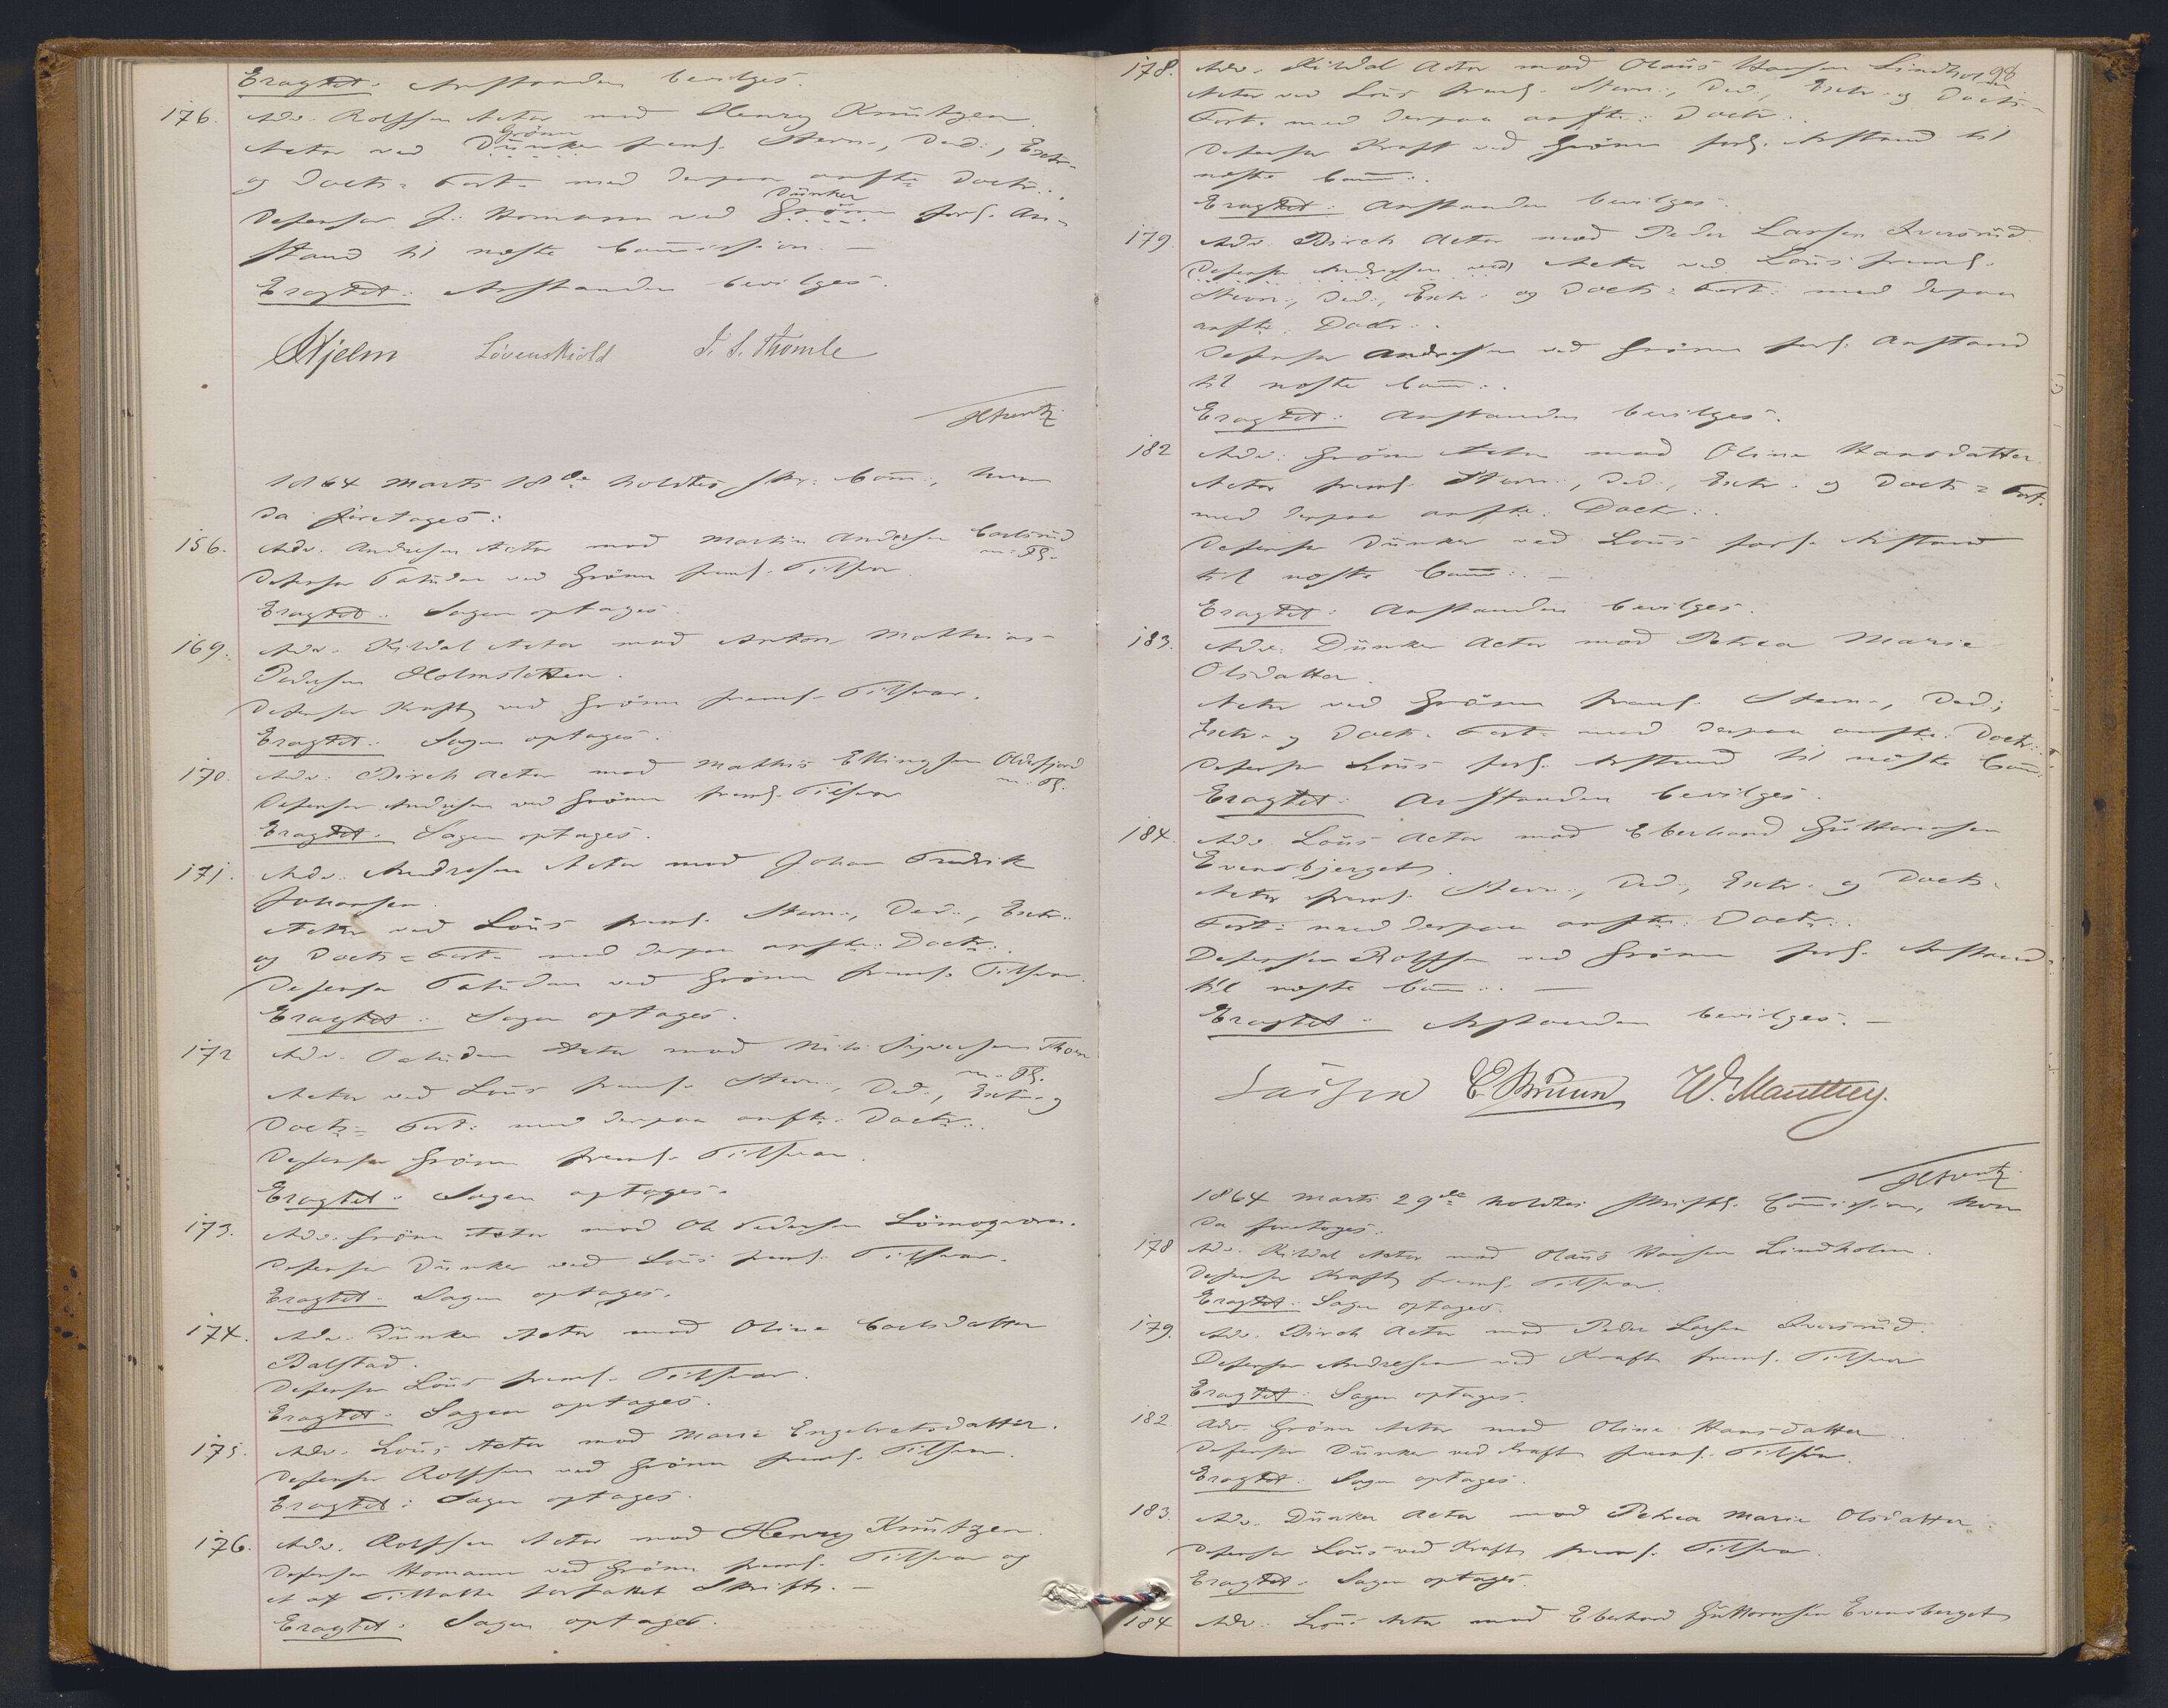 Eragtet: Anstanden bevilges.
176. Adv. Rolfsen Actor mod Henry Knützen
Grönn
Actor ved Dünker freml. Stevn., Ded., Extr.
og Doct. = Fort. med derpaa anfte. Doctr.
Dünker
Defensor J. Homann ved Grönn forl. An-
stand til næste Commission. —
Eragtet: Anstanden bevilges.
Hjelm Løvenskiold J. S. Thomle
1864 Marts 18de holdtes skr. Comm., hvor
da foretoges:
156. Adv. Andresen Actor mod Martin Andersen Carlsrud
m. Fl.
Defensor Faludan ved Grönn freml. Tilsvar.
Eragtet: Sagen optages.
169. Adv. Kildal Actor mod Anton Mathias
Pedersen Holmsletten.
Defensor Kraft ved Grönn freml. Tilsvar.
Eragtet: Sagen optages.
170. Adv. Birch Actor mod Mathis Ellingsen Oldefjord
m. Fl.
Defensor Andresen ved Grönn freml. Tilsvar
Eragtet: Sagen optages.
171. Adv. Andresen Actor mod Johan Fredrik
Johansen.
Actor ved Lous freml. Stevn., Ded., Extr.
og Doct. = Fort. med derpaa anfte. Doctr.
Defensor Faludan ved Grönn freml. Tilsvar.
Eragtet: Sagen optages.
172 Adv. Faludan Actor mod Nils Syversen Thoen
m. Fl.
Actor ved Lous freml. Stevn., Ded., Extr. og
Doct. = Fort. med derpaa anfte. Doctr.
Defensor Grönn freml. Tilsvar.
Eragtet: Sagen optages.
173. Adv. Grönn Actor mod Ole Pedersen
Defensor Dünker ved Lous freml. Tilsvar.
Eragtet: Sagen optages.
174. Adv. Dünker Actor mod Oline Carlsdatter
Balstad.
Defensor Lous freml. Tilsvar.
Eragtet: Sagen optages.
175. Adv. Lous Actor mod Marie Engebretsdatter.
Defensor Rolfsen ved Grönn freml. Tilsvar.
Eragtet: Sagen optages.
176. Adv. Rolfsen Actor mod Henry Knützen.
Defensor Homann ved Grönn freml. Tilsvar og
et af Tiltalte forfattet Skrift. —
Eragtet: Sagen optages.
98
178. Adv. Kildal Actor mod Olaus Hansen Lindholm
Actor ved Lous freml. Stevn., Ded., Extr. og Doct. =
Fort. med derpaa anfte. Doctr.
Defensor Kraft ved Grönn forl. Anstand til
næste Comm.
Eragtet: Anstanden bevilges.
179. Adv. Birch Actor mod Peder Larsen Iversrud.
Defensor Andresen ved Actor ved Lous freml.
Stevn., Ded., Extr. og Doct. = Fort. med derpaa
anfte. Doctr.
Defensor Andresen ved Grönn forl. Anstand
til næste Comm.
Eragtet: Anstanden bevilges.
182 Adv. Grönn Actor mod Oline Hansdatter.
Actor freml. Stevn., Ded., Extr. og Doct. = Fort.
med derpaa anfte. Doctr.
Defensor Dünker ved Lous forl. Anstand
til næste Comm. —
Eragtet: Anstanden bevilges.
183. Adv. Dünker Actor mod Petrea Marie
Olsdatter.
Actor ved Grönn freml. Stevn., Ded.,
Extr. og Doct. Fort. med derpaa anfte. Doctr.
Defensor Lous forl. Anstand til næste Comm.
Eragtet: Anstanden bevilges.
184. Adv. Lous Actor mod Eberhard Guttormsen
Evensbjerget.
Actor freml. Stevn., Ded., Extr. og Doct. =
Fort. med derpaa anfte. Doctr.
Defensor Rolfsen ved Grönn forl. Anstand
til næste Comm. —
Eragtet: Anstanden bevilges. —
E. Bruun W. Manthey.
1864 Marts 29de holdtes skriftl. Commission, hvor
da foretoges.
178 Adv. Kildal Actor mod Olaus Hansen Lindholm.
Defensor Kraft freml. Tilsvar.
Eragtet: Sagen optages.
179. Adv. Birch Actor mod Peder Larsen Iversrud.
Defensor Andresen ved Kraft freml. Tilsvar
Eragtet: Sagen optages.
182. Adv. Grönn Actor mod Oline Hansdatter.
Defensor Dünker ved Kraft freml. Tilsvar.
Eragtet: Sagen optages.
183. Adv. Dünker Actor mod Petrea Marie Olsdatter.
Defensor Lous ved Kraft freml. Tilsvar.
Eragtet: Sagen optages.
184 Adv. Lous Actor mod Eberhard Guttormsen Evensberget